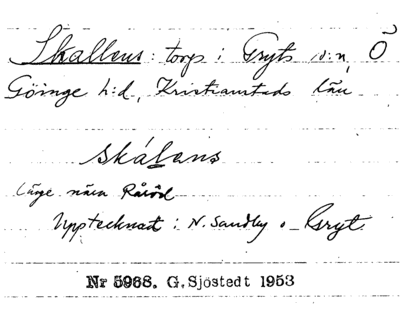 Skallens: torp i Gryts s:n, Ö
Göinge h:d, Kristianstads län
skálens
Läge nära Råröd
Upptecknat i N. Sandby o. Gryt.
Nr 5968. G. Sjöstedt 1953